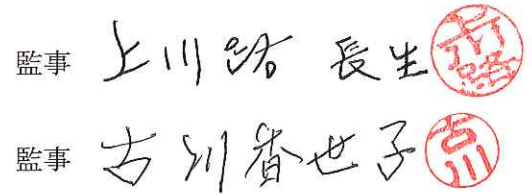 監事 上川路 長生 上川路
監事 古川香世子 古川